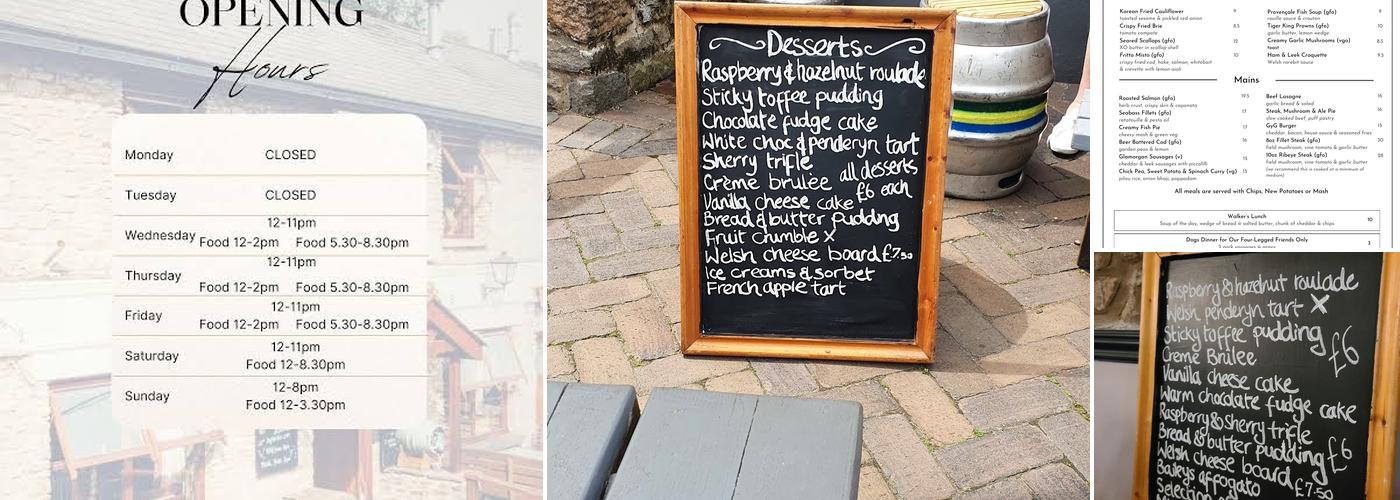 OPENING
Hours
Monday CLOSED
Tuesday CLOSED
12-11pm
Wednesday Food 12-2pm Food 5.30-8.30pm
12-11pm
Thursday Food 12-2pm Food 5.30-8.30pm
12-11pm
Friday Food 12-2pm Food 5.30-8.30pm
12-11pm
Saturday
Food 12-8.30pm
12-8pm
Sunday
Food 12-3.30pm
Desserts
Raspberry & hazelnut roulade
Sticky toffee pudding
Chocolate fudge cake
White choc & penderyn tart
Sherry trifle
all desserts
Crème brulee
£6 each
Vanilla cheese cake
Bread & butter pudding
Fruit Crumble X
Welsh cheese board £7.50
Ice creams & sorbet
French apple tart
Korean Fried Cauliflower 9
toasted sesame & pickled red onion
Crispy Fried Brie 8.5
tomato compote
Seared Scallops (gfo) 12
XO butter in scallop shell
Fritto Misto (gfo) 10
crispy fried cod, hake, salmon, whitebait
& crevette with lemon aioli
Provençale Fish Soup (gfo) 9
rouille sauce & crouton
Tiger King Prawns (gfo) 10
garlic butter, lemon wedge
Creamy Garlic Mushrooms (vgo) 8.5
toast
Ham & Leek Croquette 9.5
Welsh rarebit sauce
Mains
Roasted Salmon (gfo) 19.5
herb crust, crispy skin & caponata
Seabass Fillets (gfo) 17
ratatouille & pesto oil
Creamy Fish Pie 17
cheesy mash & green veg
Beer Battered Cod (gfo) 16
garden peas & lemon
Glamorgan Sausages (v) 15
cheddar & leek sausages with piccalilli
Chick Pea, Sweet Potato & Spinach Curry (vg) 15
pilau rice, onion bhaji, poppadom
Beef Lasagne 16
garlic bread & salad
Steak, Mushroom & Ale Pie 16
slow cooked beef, puff pastry
GyG Burger 15
cheddar, bacon, house sauce & seasoned fries
8oz Fillet Steak (gfo) 30
field mushroom, vine tomato & garlic butter
10oz Ribeye Steak (gfo) 28
field mushroom, vine tomato & garlic butter
(we recommend this is cooked at a minimum of
medium)
All meals are served with Chips, New Potatoes or Mash
Walker's Lunch 10
Soup of the day, wedge of bread & salted butter, chunk of cheddar & chips
Dogs Dinner for Our Four-Legged Friends Only 3
Raspberry & hazelnut roulade
Welsh penderyn tart X
Sticky toffee pudding
£6
Creme Brulee
Vanilla cheese cake
Warm chocolate fudge cake
Raspberry & sherry trifle
Bread & butter pudding £6
Welsh cheese board £7.50
Baileys affogato